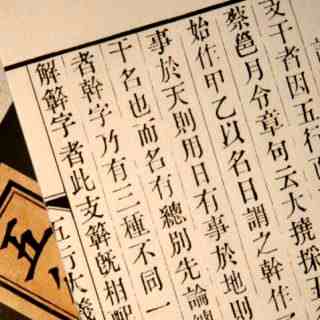 支干者因五行而
蔡邕月令章句云大撓採五
始作甲乙以名日謂之幹作
事於天則用日有事於地則
干名也而名有總別先論
者幹字乃有三種不同一
解簳字者此支簳旣相配
五行大義
五